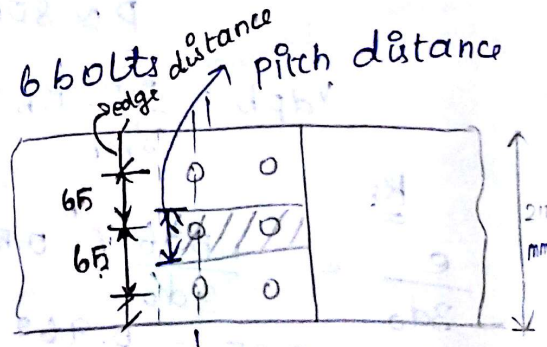 6 bolts
edge distance
pitch distance
65
65
mm